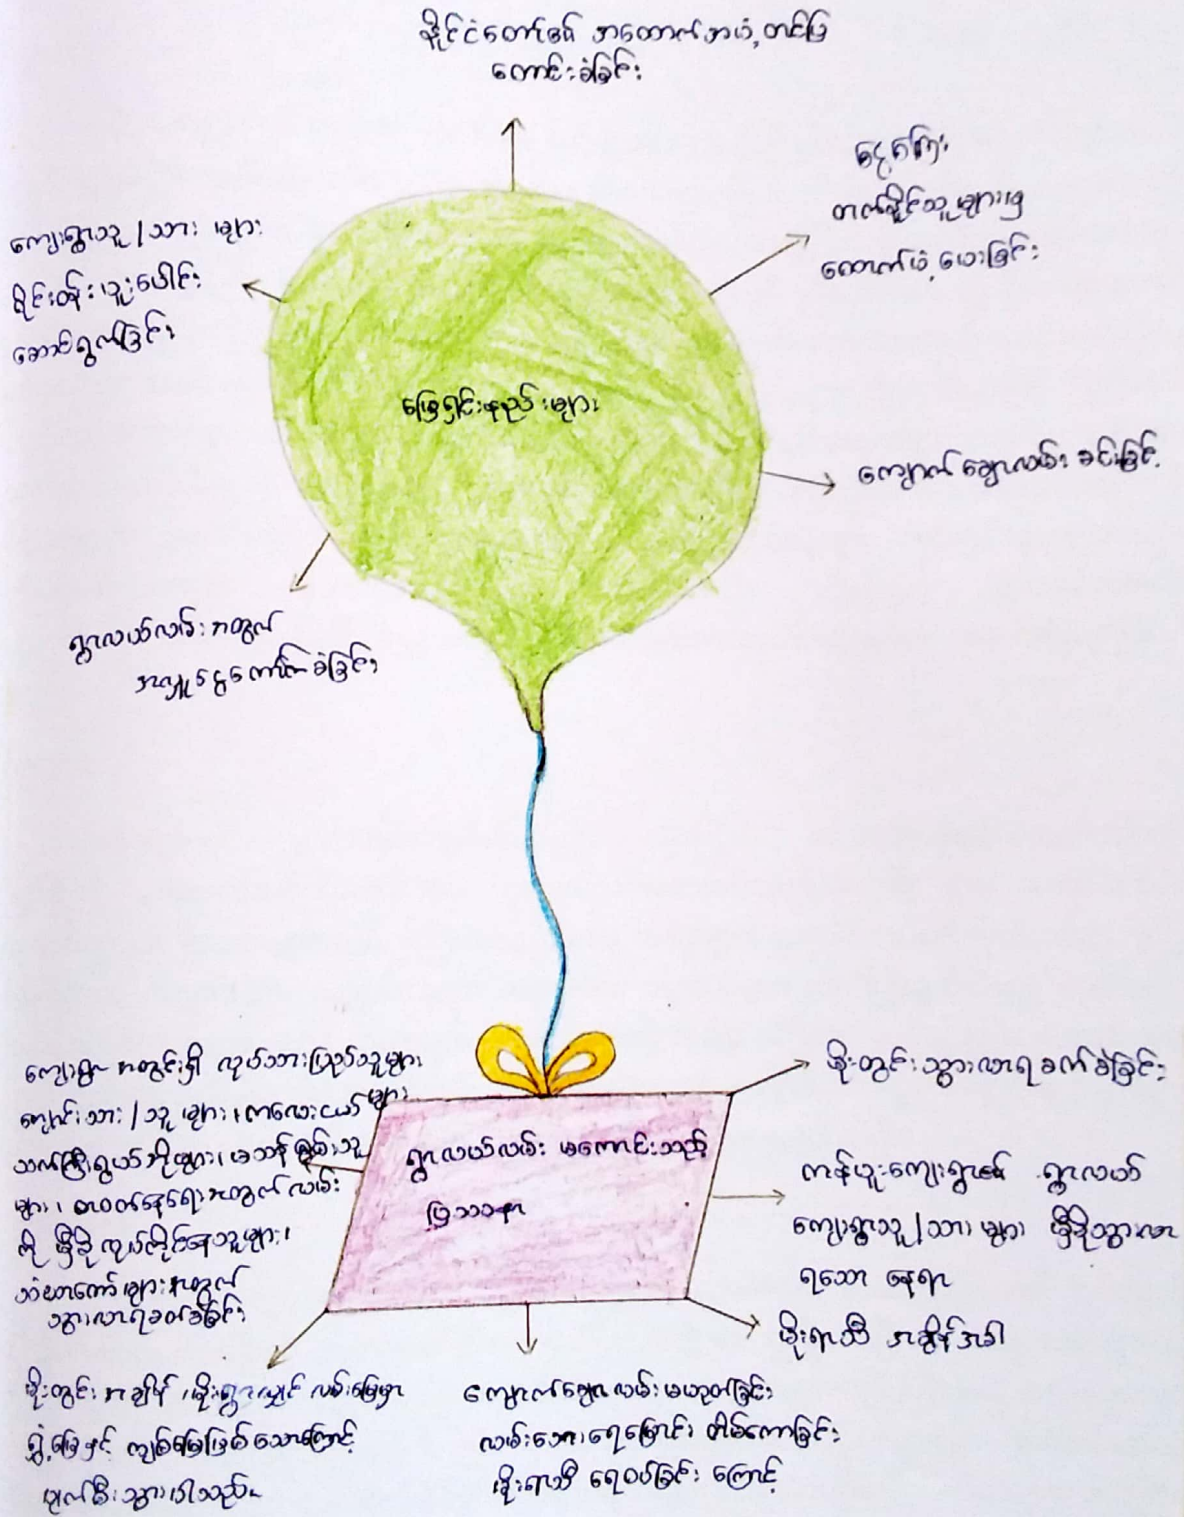 နိုင်ငံတော်၏ အထောက်အပံ့ တင်ပြ
တောင်းခံခြင်း
ငွေကြေး
တတ်နိုင်သူများမှ
ထောက်ပံ့ပေးခြင်း
ကျေးရွာသူ/သား များ
ဝိုင်းဝန်းပူးပေါင်း
ဆောင်ရွက်ခြင်း
ဖြေရှင်းနည်းများ
ကျောက်ချောလမ်း ခင်းခြင်း
ရွာလယ်လမ်းအတွက်
အလှူငွေကောက်ခံခြင်း
ကျေးရွာ အတွင်းရှိ လုပ်သားပြည်သူများ
ကျောင်းသား/သူ များ၊ ကလေးငယ်များ
သက်ကြီးရွယ်အိုများ၊ မသန်စွမ်းသူ
များ၊ စားဝတ်နေရေးအတွက် လမ်း
ကို မှီခိုလုပ်ကိုင်နေသူများ၊
သံဃာတော်များအတွက်
သွားလာရခက်ခဲခြင်း
ရွာလယ်လမ်း မကောင်းသည့်
ပြဿနာ
မိုးတွင်းသွားလာရခက်ခဲခြင်း
ကန်ဖူးကျေးရွာ၏ ရွာလယ်
ကျေးရွာသူ/သား များ မှီခိုသွားလာ
ရသော နေရာ
မိုးရာသီ အချိန်အခါ
မိုးတွင်း အချိန် မိုးရွာလျှင် လမ်းမြေမှာ
ရွှံ့မြေနှင့် ကျစ်မြေဖြစ်သောကြောင့်
ပျက်စီးသွားပါသည်။
ကျောက်ချောလမ်းမဟုတ်ခြင်း
လမ်းဘေးရေမြောင်း တိမ်ကောခြင်း
မိုးရာသီ ရေဝပ်ခြင်း ကြောင့်